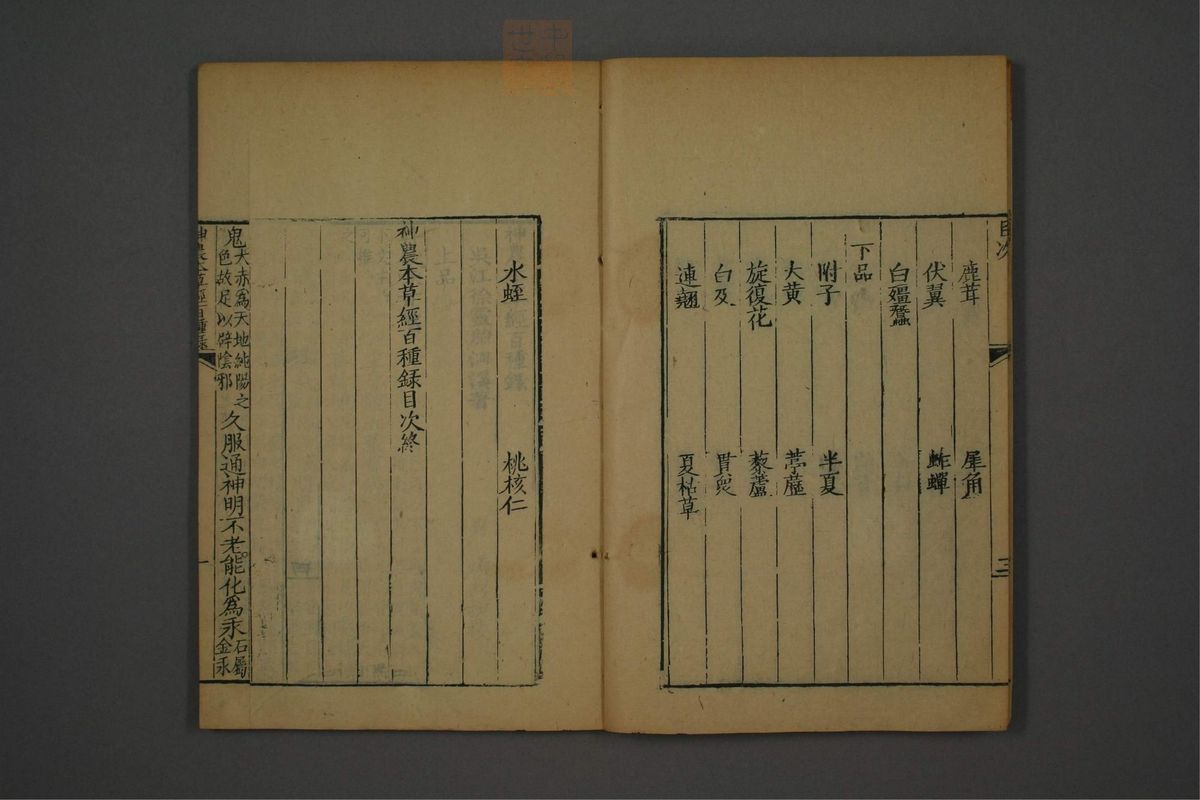 目次
鹿茸 犀角
伏翼 蚱蟬
白殭蠶
下品
附子 半夏
大黃 葶藶
旋復花 藜蘆
白及 貫衆
連翹 夏枯草
三
水蛭 桃核仁
神農本草經百種錄目次終
鬼大赤爲天地純陽之色故足以辟陰邪久服通神明不老能化爲汞石屬金汞
神農本草經百種錄
一